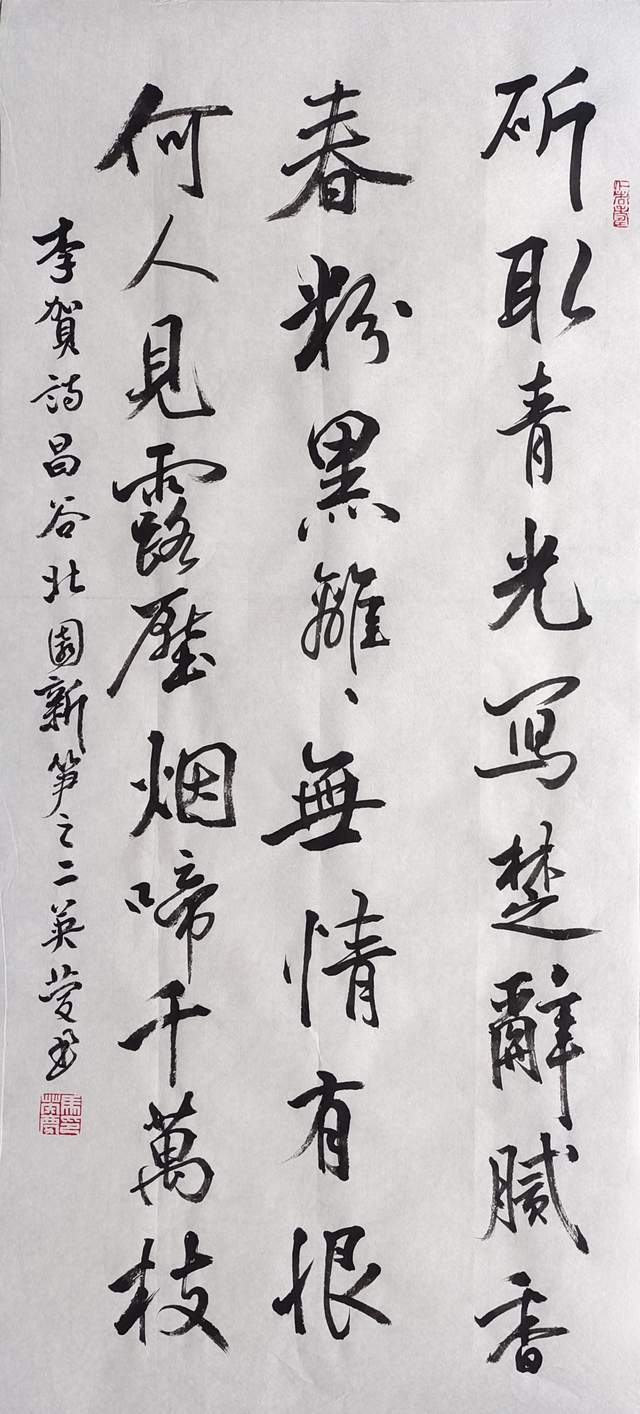 斫取青光写楚辭膩香
春粉黑離〻無情有恨
何人見露壓烟啼千萬枝
李賀詩昌谷北園新笋之二英夢书